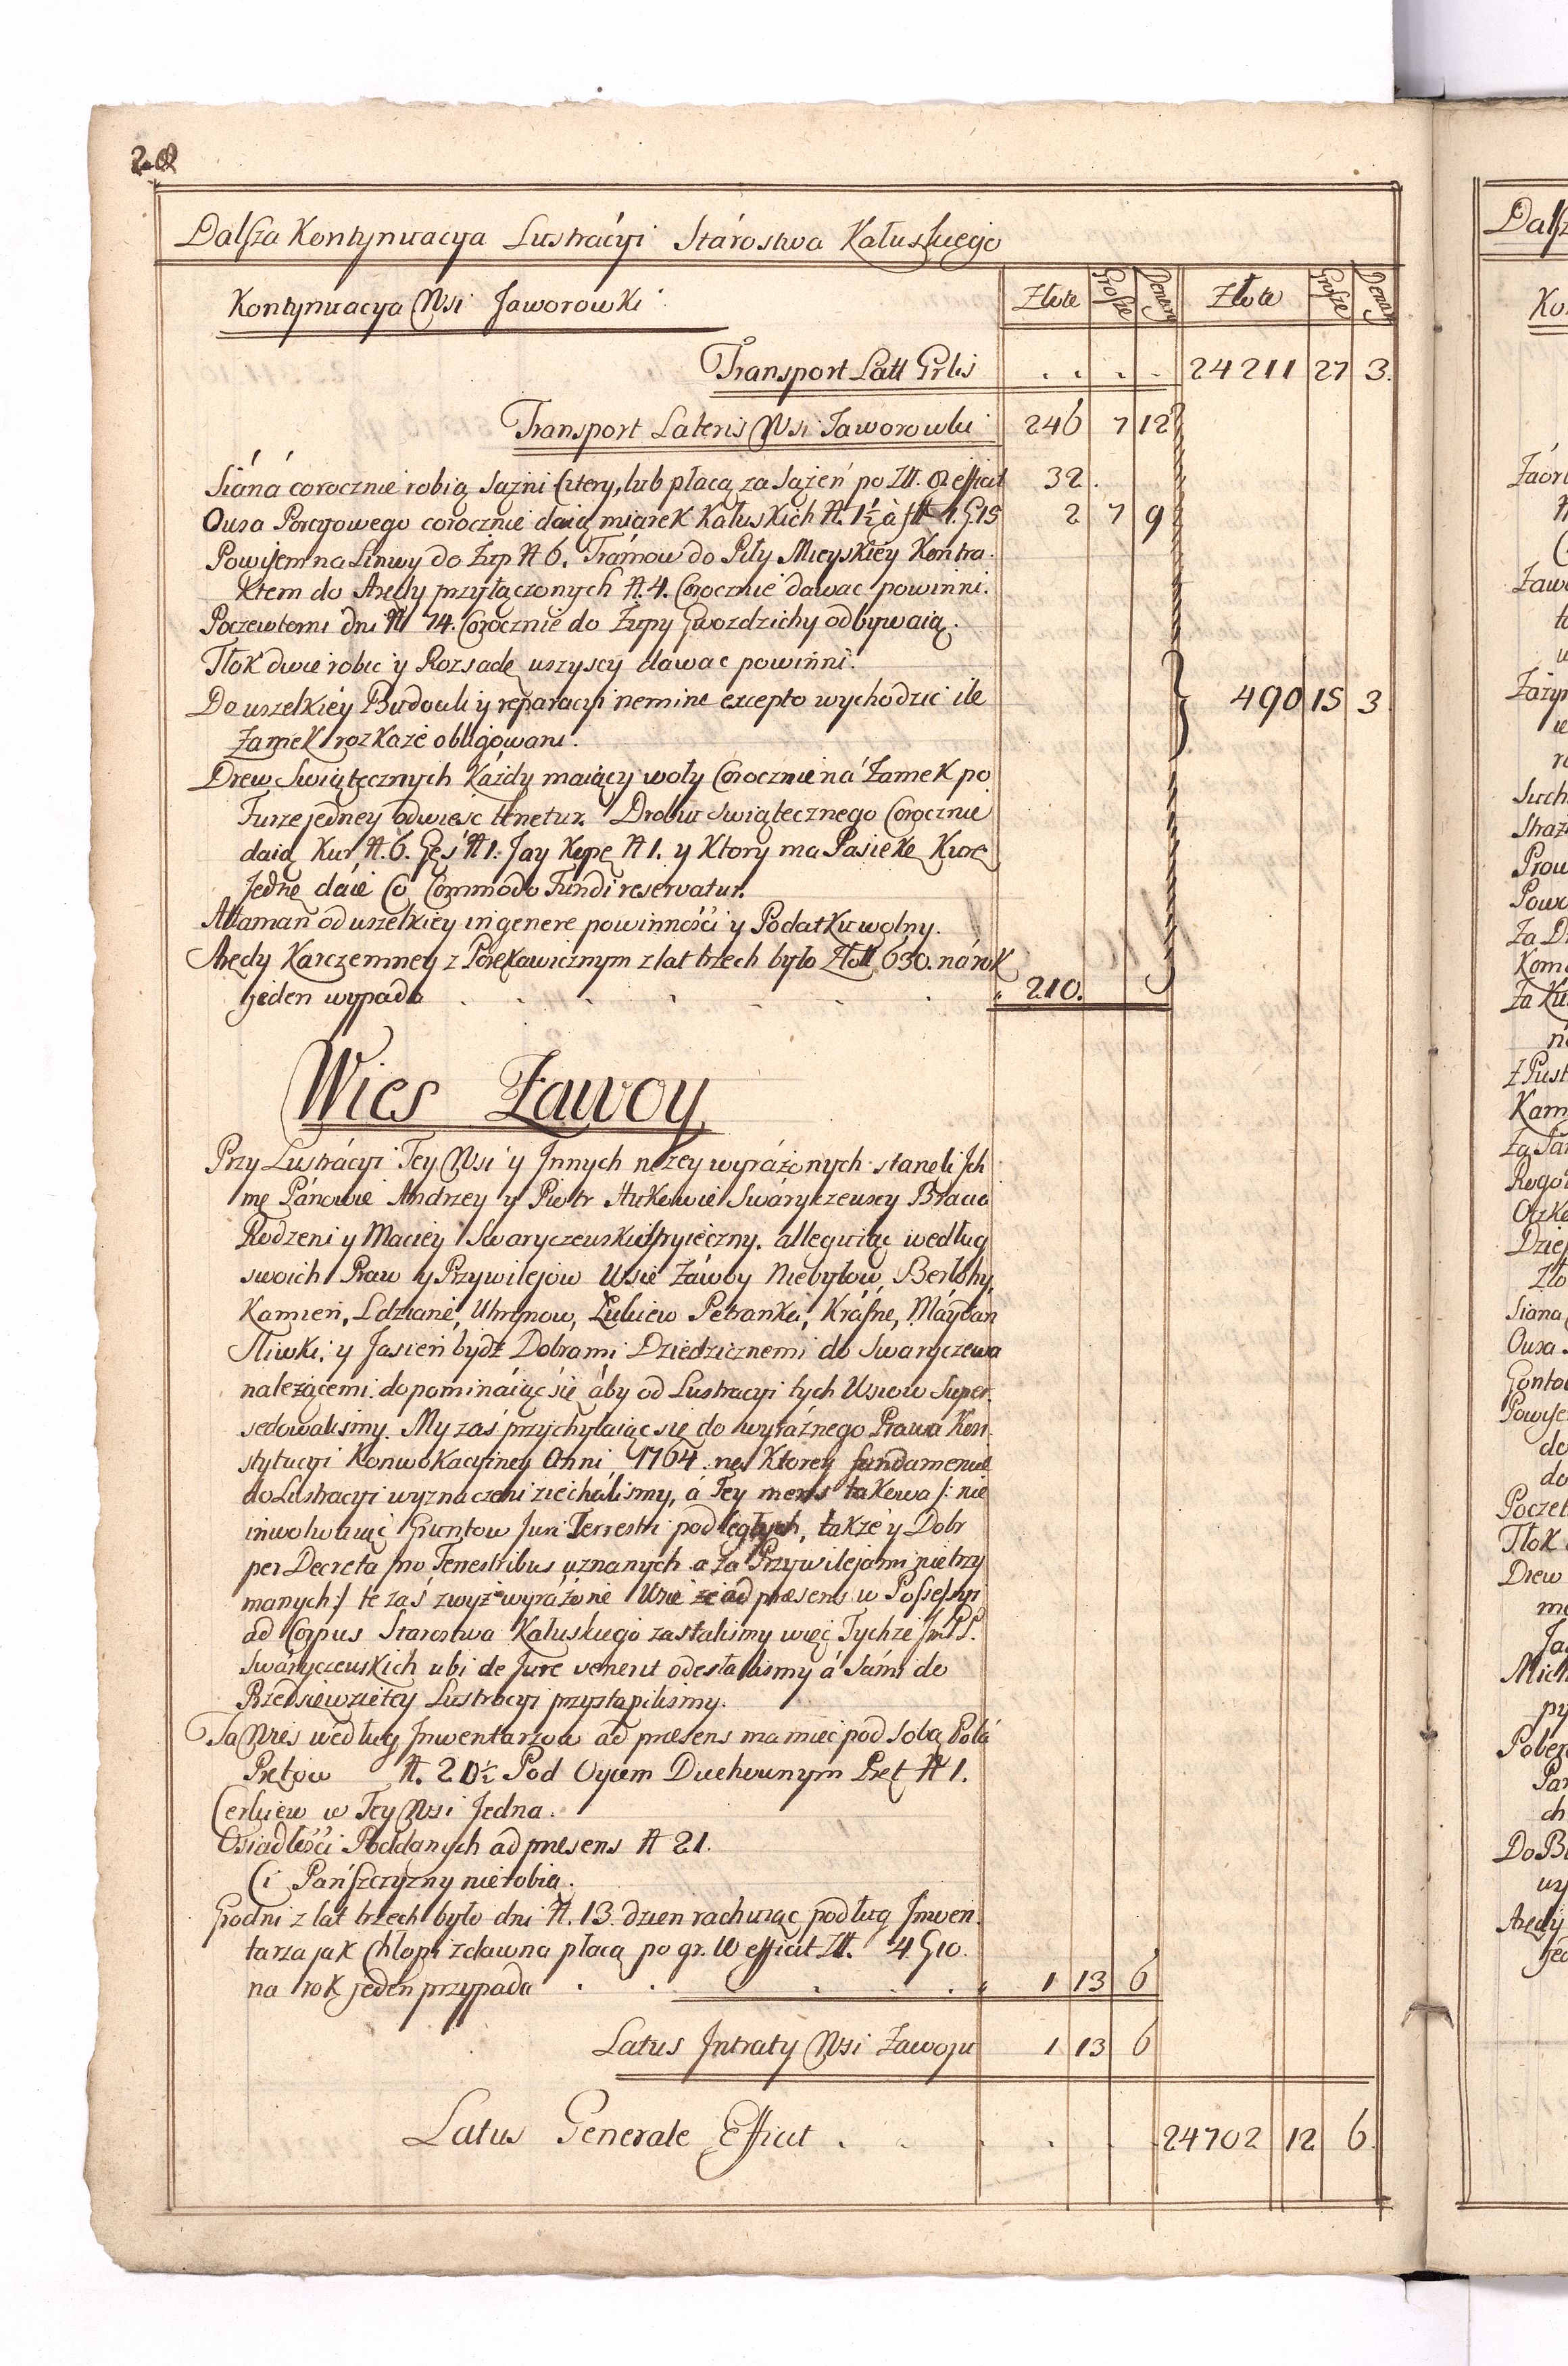 Dalsza Kontynuacya Lustracyi Starostwa Kałuskiego
Kontynuacya Wsi Jaworowki Złote Grosze Denary Złote Grosze Denary
Transport Latt Grlis . . . . 24211 27 3.
Transport Lateris Wsi Jaworowki 246 7 12
Siáná corocznie robią Sązni Cztery, lub płacą za Sążeń po Złł. 8 efficit 32.
Owsa Porcyowego corocznie daią miarek Kałuskich N. 1½ à fl 1. G15 2 7 9
Powisem na Linwy do Żup N 6. Trámow do Piły Mieyskiey Kontra.
ktem do Arędy przyłączonych N. 4. Corocznie dawac powinni.
Poczewterni dni N 14. Corocznie do Żupy Gwozdzichy odbywaią.
Tłok dwie robic y Rozsadę wszyscy dawac powinni.
Do wszelkiéy Budowli y reparacyi nemine excepto wychodzic ile 490 15 3
Zamek rozkaże obligowani.
Drew Swiątęcznych Każdy maiący woły Corocznie ná Zamek po
Furze jedney odwieśc tenetur. Drobiu Swiątecznego Corocznie
daią Kur N. 6. Gęś N 1. Jay Kopę N 1. y Ktory ma Pasiekę Kurę
Jednę daie Co Commodo Fundi reservatur.
Attaman od wszelkiey in genere powinności y Podatku wolny.
Arędy Karczemney z Porękawicznym z lat trzech było Złott 630. ná rok
jeden wypada . . . . . . . 210.
Wies Zawoy
Przy Lustrácyi Tey Wsi y Innych niżey wyrázonych staneli Jch
mę Pánowie Andrzey y Piotr Swáryczewscy Bracia
Rodzeni y Maciey Swaryczewski Stryieczny. alleguiąc według
swoich Praw y Przywilejow Wsie Záwoy Niebyłow, Berłohy,
Kamień, Ldzianié, Uhrynow, Łuhiew Petranka, Krásne, Máydan
Sliwki, y Jasień bydź Dobrami Dziedzicznemi do Swaryczewa
nalezącemi. dopomináiąc się áby od Lustracyi tych Wsiow Super.
sedowalismy. My zaś przychylaiąc się do wyráźnego Prawa Kon.
stytucyi Konwokacyiney Anni 1764. na Ktorey fundamencie
do Lustracyi wyznaczeni ziecháliśmy, á Tey mens takowa /: nie
inwolwuiąc Gruntow Juri Terrestri podległych, także y Dobr
per Decreta pro Terrestribus uznanych a za Przywilejami nietrzy
manych:/ te zaś zwyż wyráżone Wsie że ad præsens w Possessyi
ad Corpus Starostwa Kałuskiego zastaliśmy więc Tychże Jm PP.
Swáryczewskich ubi de Jure venerit odesłaliśmy á Sámi do
Przedsiewziętey Lustracyi przystąpiliśmy.
Ta Wies według Inwentarzow ad præsens ma miec pod Sobą Polá
Prętow N. 20½ Pod Oycem Duchownym Pręt N 1.
Cerkiew w Tey Wsi Jedna.
Osiadłości Poddanych ad præsens N 21.
Ci Pańszczyzny nierobią.
Grodni z lat trzech było dni N. 13. dzien rachuiąc podług Inwen.
tarza jak Chłopi zdawna płacą po gr. 10 efficit Złł. 4 G10.
na rok jeden przypada . . . . . 1 13 6
Latus Intraty Wsi Zawoju 1 13 6
Latus Generale Efficit . . . . . 24702 12 6.